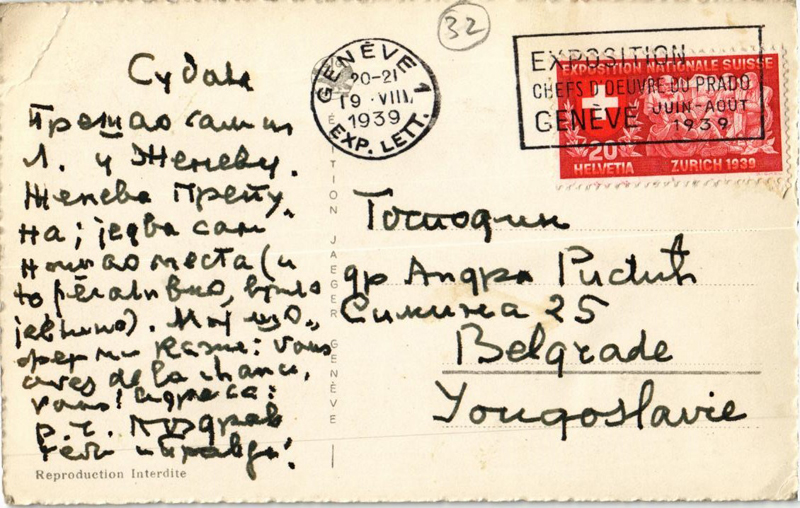 32
GENÈVE 1
20-21
19·VIII
1939
EXP. LETT.
EXPOSITION
CHEFS D'OEUVRE DU PRADO
JUIN-AOUT
GENÈVE 1939
EXPOSITION NATIONALE SUISSE
20
HELVETIA ZURICH 1939
Прешао сам и
Л. у Женеву.
Женева препу
на; једва сам
нашао места (и
то релативно, врло
јевтино). Мој шо
фер ми каже: vous
avez de la chance,
vous! Адреса:
р. ч. Поздрав
теби и Правди!
Reproduction Interdite
EDITION JAEGER GENÈVE
Господин
др Андра
Симина 25
Belgrade
Yougoslavie